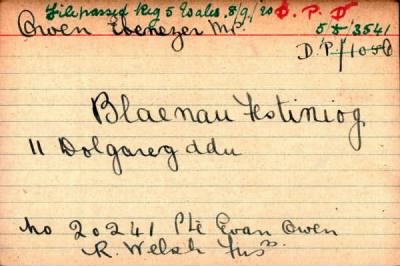 File passed Reg 5 Wales. 8/9/20 D. P. D
Owen Ebenezer Mr. 5 5/3541
D.P./1056
Blaenau Festiniog
11 Dolgareg ddu
No 20241 Pte Evan Owen
R. Welsh Fus